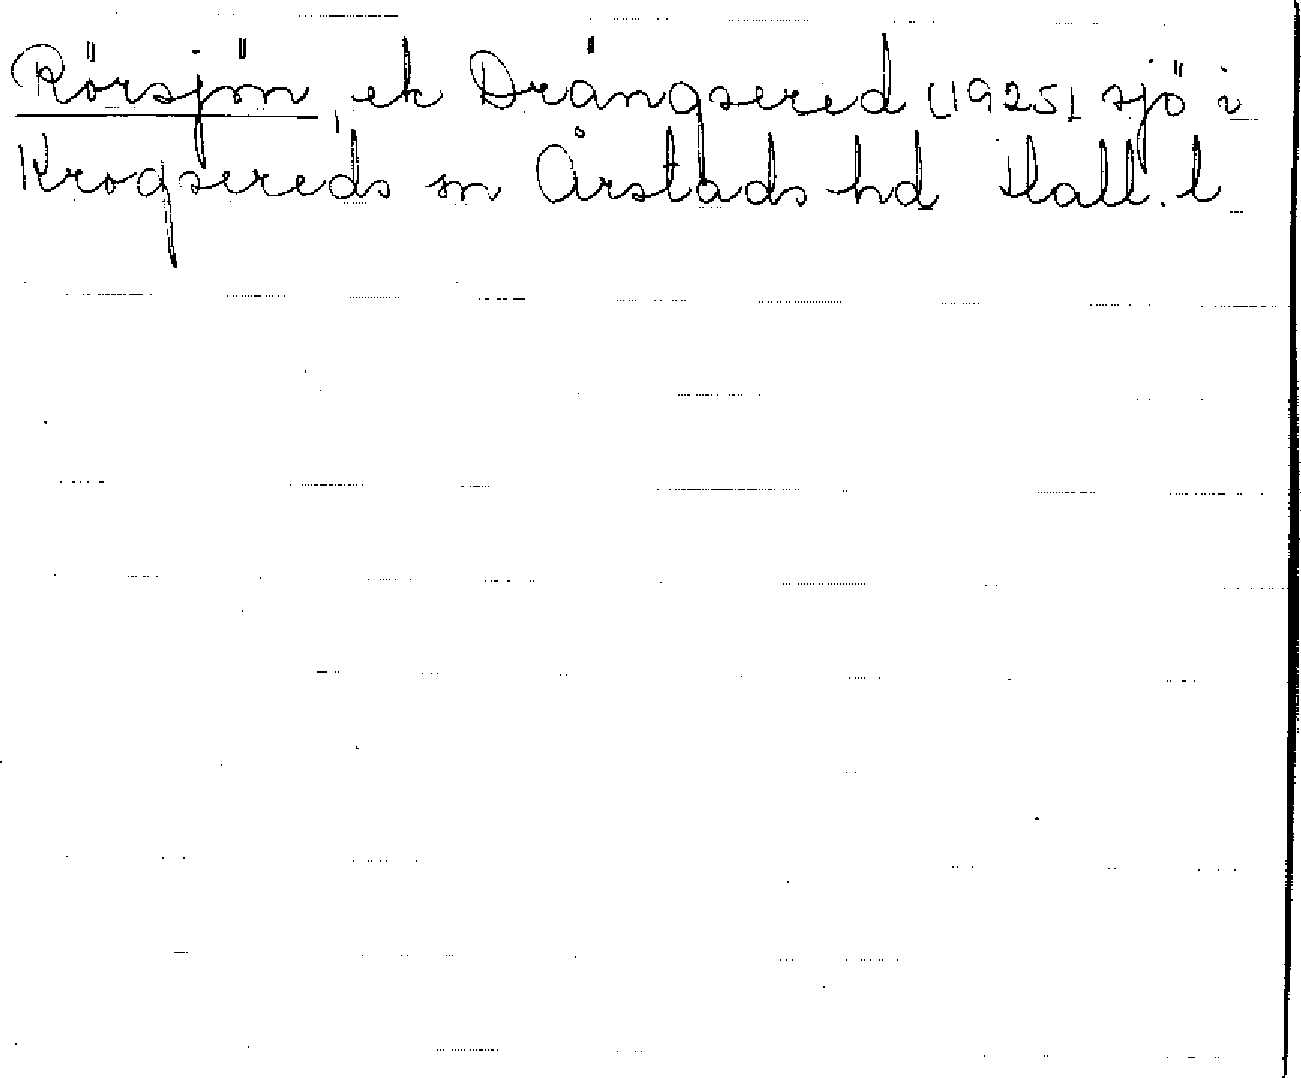 Rörsjön, ek Drängsered (1925) sjö i
Krogsereds sn Årstads hd Hall. l